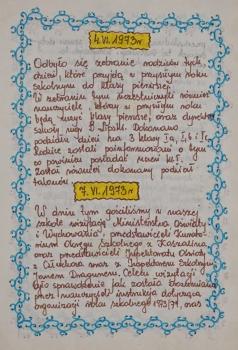 4.VI.1973r
Odbyło się zebranie rodziców tych
dzieci, które przyjdą w przyszłym roku
szkolnym do klasy pierwszej.
W zebraniu tym uczestniczyli również
nauczyciele, którzy w przyszłym roku
będą uczyć klasy pierwsze, oraz dyrektor
szkoły
podziału dzieci na 3 klasy Ia, Ib i Ic.
Rodzice zostali poinformowani o tym
co powinien posiadać uczeń kl. I.
Został również dokonany podział
7.VI.1973r
W dniu tym gościliśmy w naszej
szkole wizytację Ministerstwa Oświaty
i Wychowania, przedstawicieli Kurato-
rium Okręgu Szkolnego z Koszalina
oraz przedstawicieli Inspektoratu Oświaty
z Człuchowa wraz z Inspektorem Szkolnym
Janem
było sprawdzenie jak została
przez nauczycieli instrukcja dotycząca
organizacji roku szkolnego 1973/74, oraz